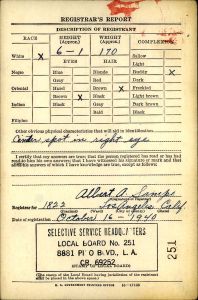 REGISTRAR'S REPORT
DESCRIPTION OF REGISTRANT
RACE HEIGHT (Approx.) WEIGHT (Approx.) COMPLEXION
6-1 170
White X Sallow
EYES HAIR Light
Negro Blue Blonde Ruddy X
Gray Red Dark
Oriental Hazel Brown X Freckled
Brown X Black Light brown
Indian Black Gray Dark brown
Bald Black
Filipino
Other obvious physical characteristics that will aid in identification
spot in right eye
I certify that my answers are true; that the person registered has read or has had
read to him his own answers; that I have witnessed his signature or mark and that
all of his answers of which I have knowledge are true, except as follows:
Albert A.
Registrar for 1822 Los Angeles Calif
Date of registration October 16-1940
SELECTIVE SERVICE HEADQUARTERS
LOCAL BOARD No. 251
8881 PICO BLVD., L.A.
251
(STAMP OF LOCAL BOARD)
(The stamp of the Local Board having jurisdiction of the registrant
shall be placed in the above space)
U. S. GOVERNMENT PRINTING OFFICE